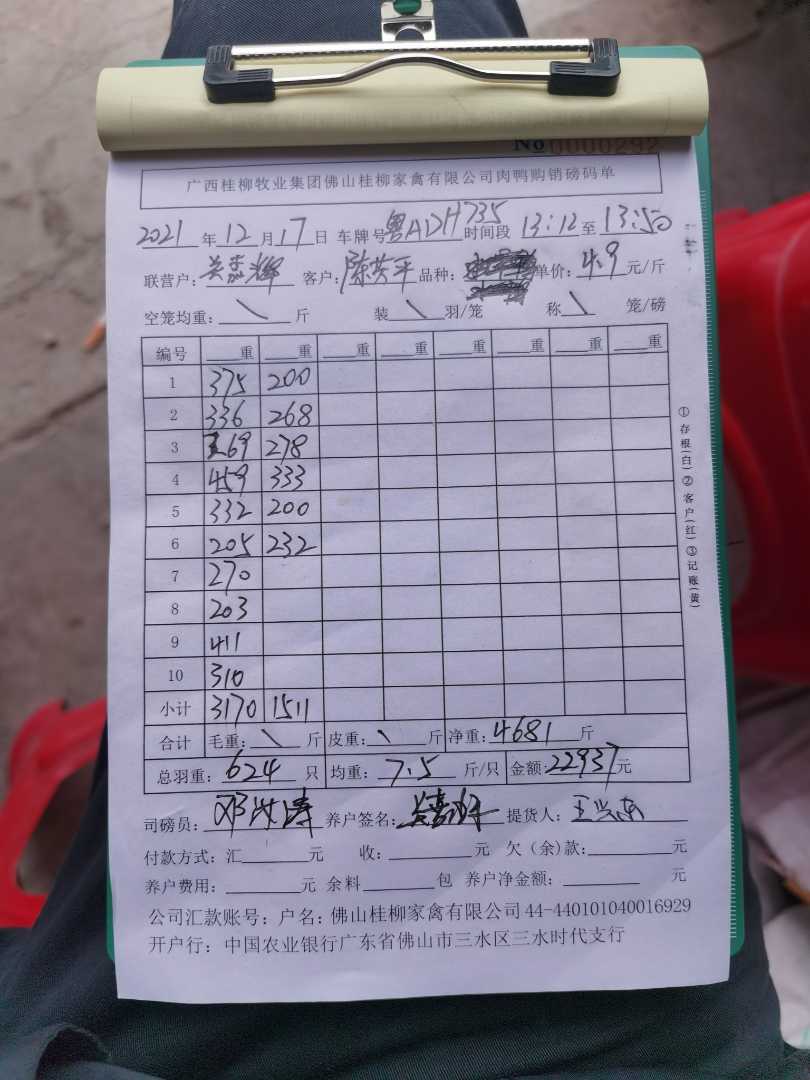 No 0000292
广西桂柳牧业集团佛山桂柳家禽有限公司肉鸭购销磅码单
2021 年 12 月 17 日 车牌号 粤ADH735 时间段 13:12 至 13:50
联营户: 客户: 陈共平 品种: 单价: 4.9 元/斤
空笼均重: \ 斤 装 \ 羽/笼 称 \ 笼/磅
编号 重 重 重 重 重 重 重 重
1 375 200
2 336 268
3 269 278
4 459 333
5 332 200
6 205 232
7 270
8 203
9 411
10 310
小计 3170 1511
合计 毛重: \ 斤 皮重: \ 斤 净重: 4681 斤
总羽重: 624 只 均重: 7.5 斤/只 金额: 22937 元
司磅员: 养户签名: 提货人:
付款方式: 汇 元 收: 元 欠(余)款: 元
养户费用: 元 余料 包 养户净金额: 元
公司汇款账号: 户名: 佛山桂柳家禽有限公司 44-440101040016929
开户行: 中国农业银行广东省佛山市三水区三水时代支行
①存根(白)②客户(红)③记账(黄)